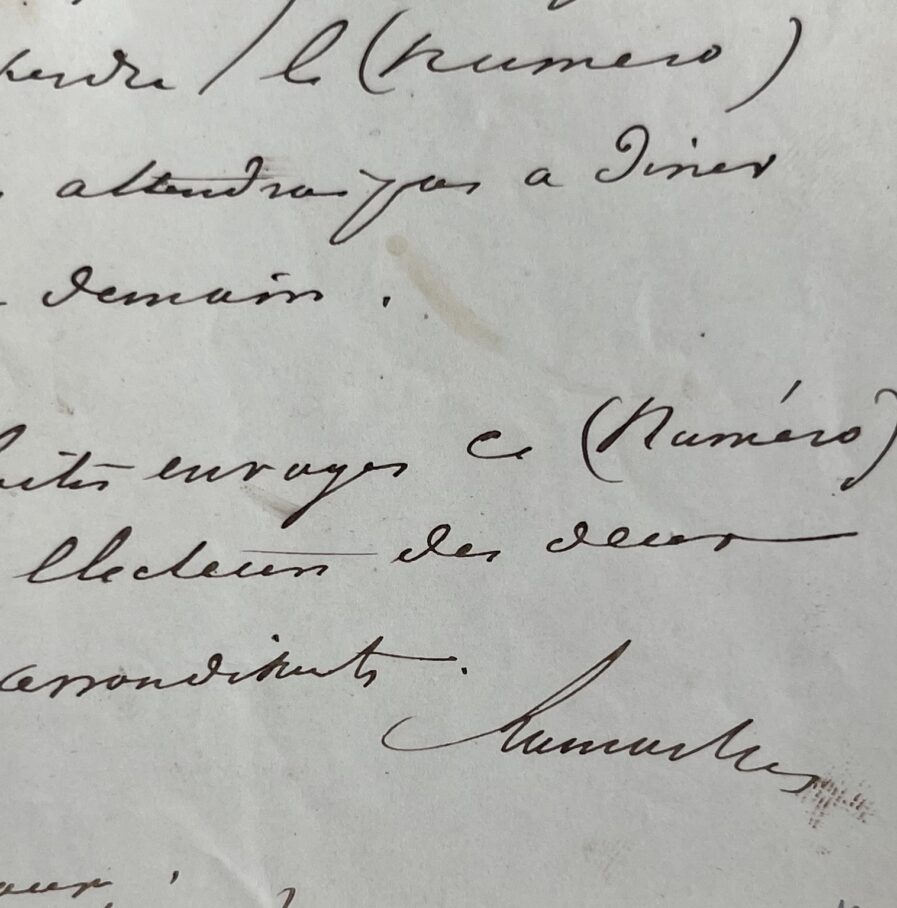 perdre / le (numero)
attendrai pas a diner
demain.
faites envoyer ce (Numéro)
électeurs des deux
arrondisments.